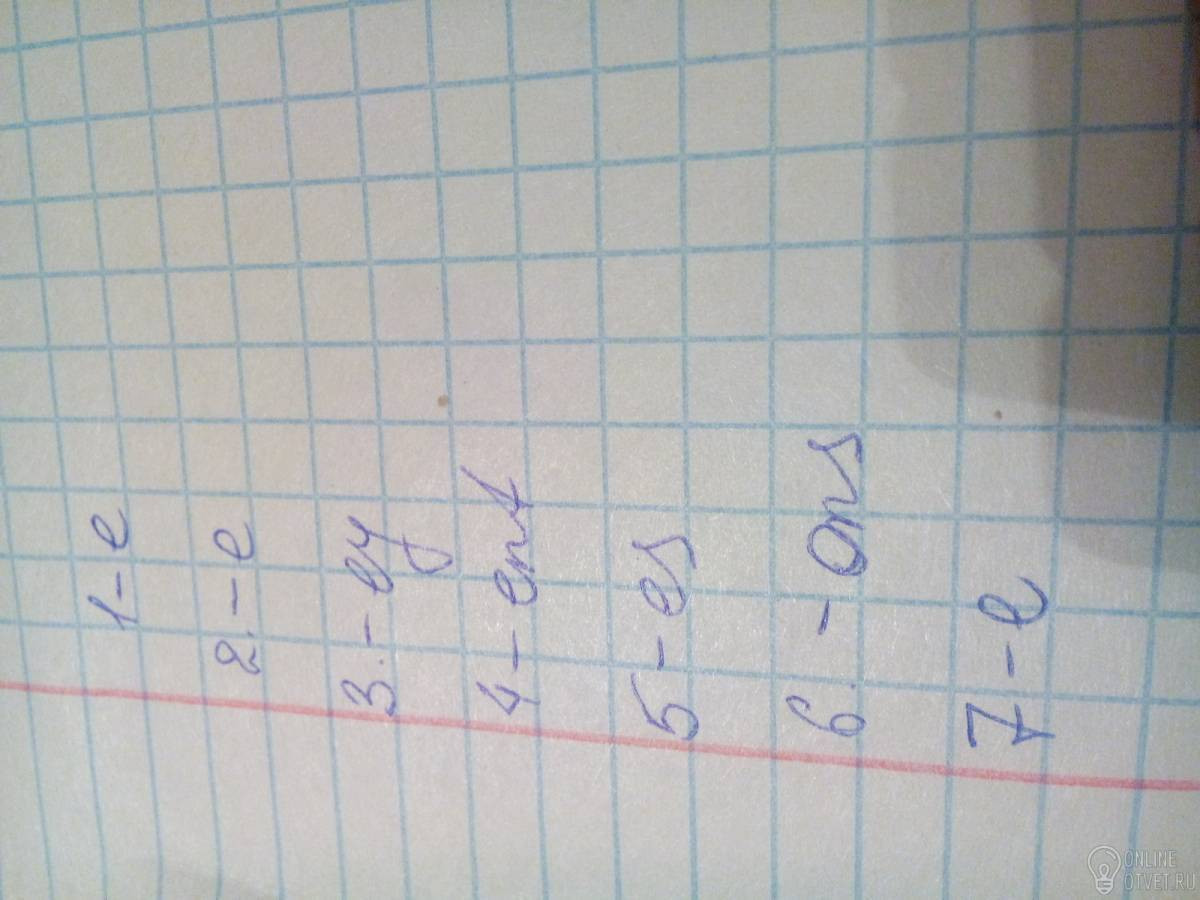 1-e
2.-e
3.-ey
4-ent
5-es
6.-ons
7-e
ONLINE
OTVET.RU